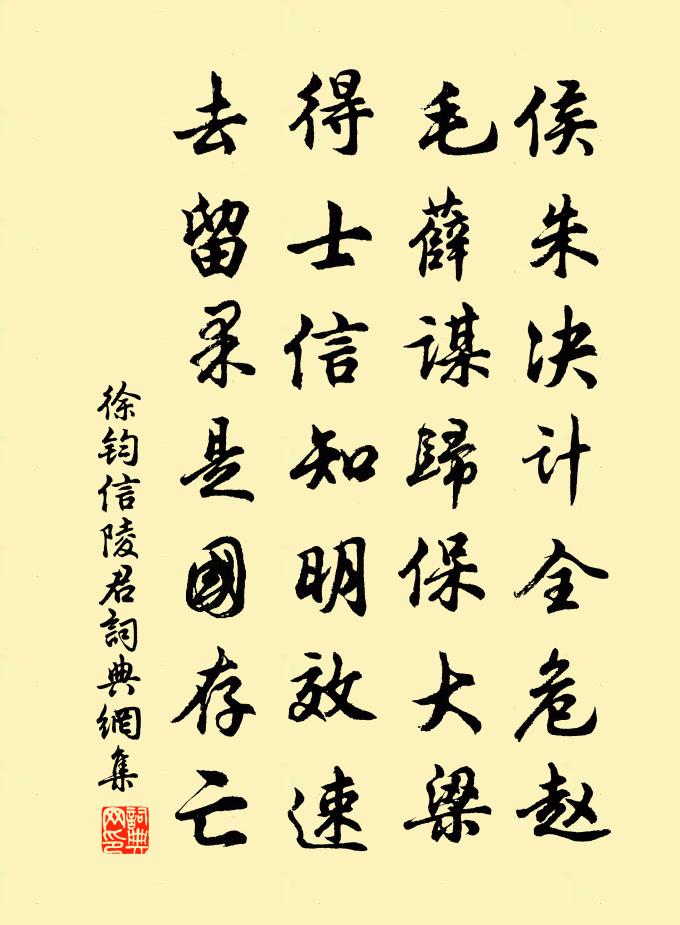 侯朱决计全危赵
毛薛謀歸保大梁
得士信知明效速
去留果是國存亡
徐鈞信陵君詞典網集
詞典网印